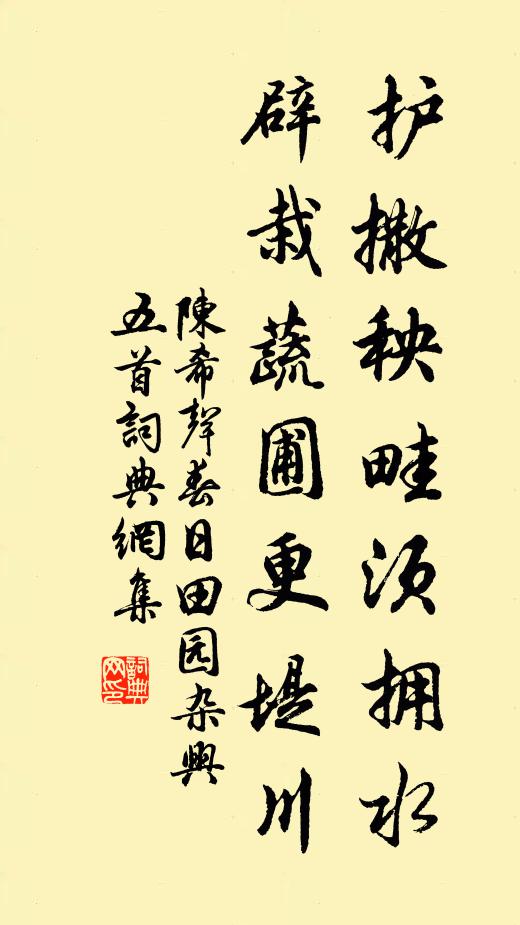 护撒秧畦须拥水
辟栽蔬圃更堤川
陳希聲春日田园杂興
五首詞典網集
詞典网印